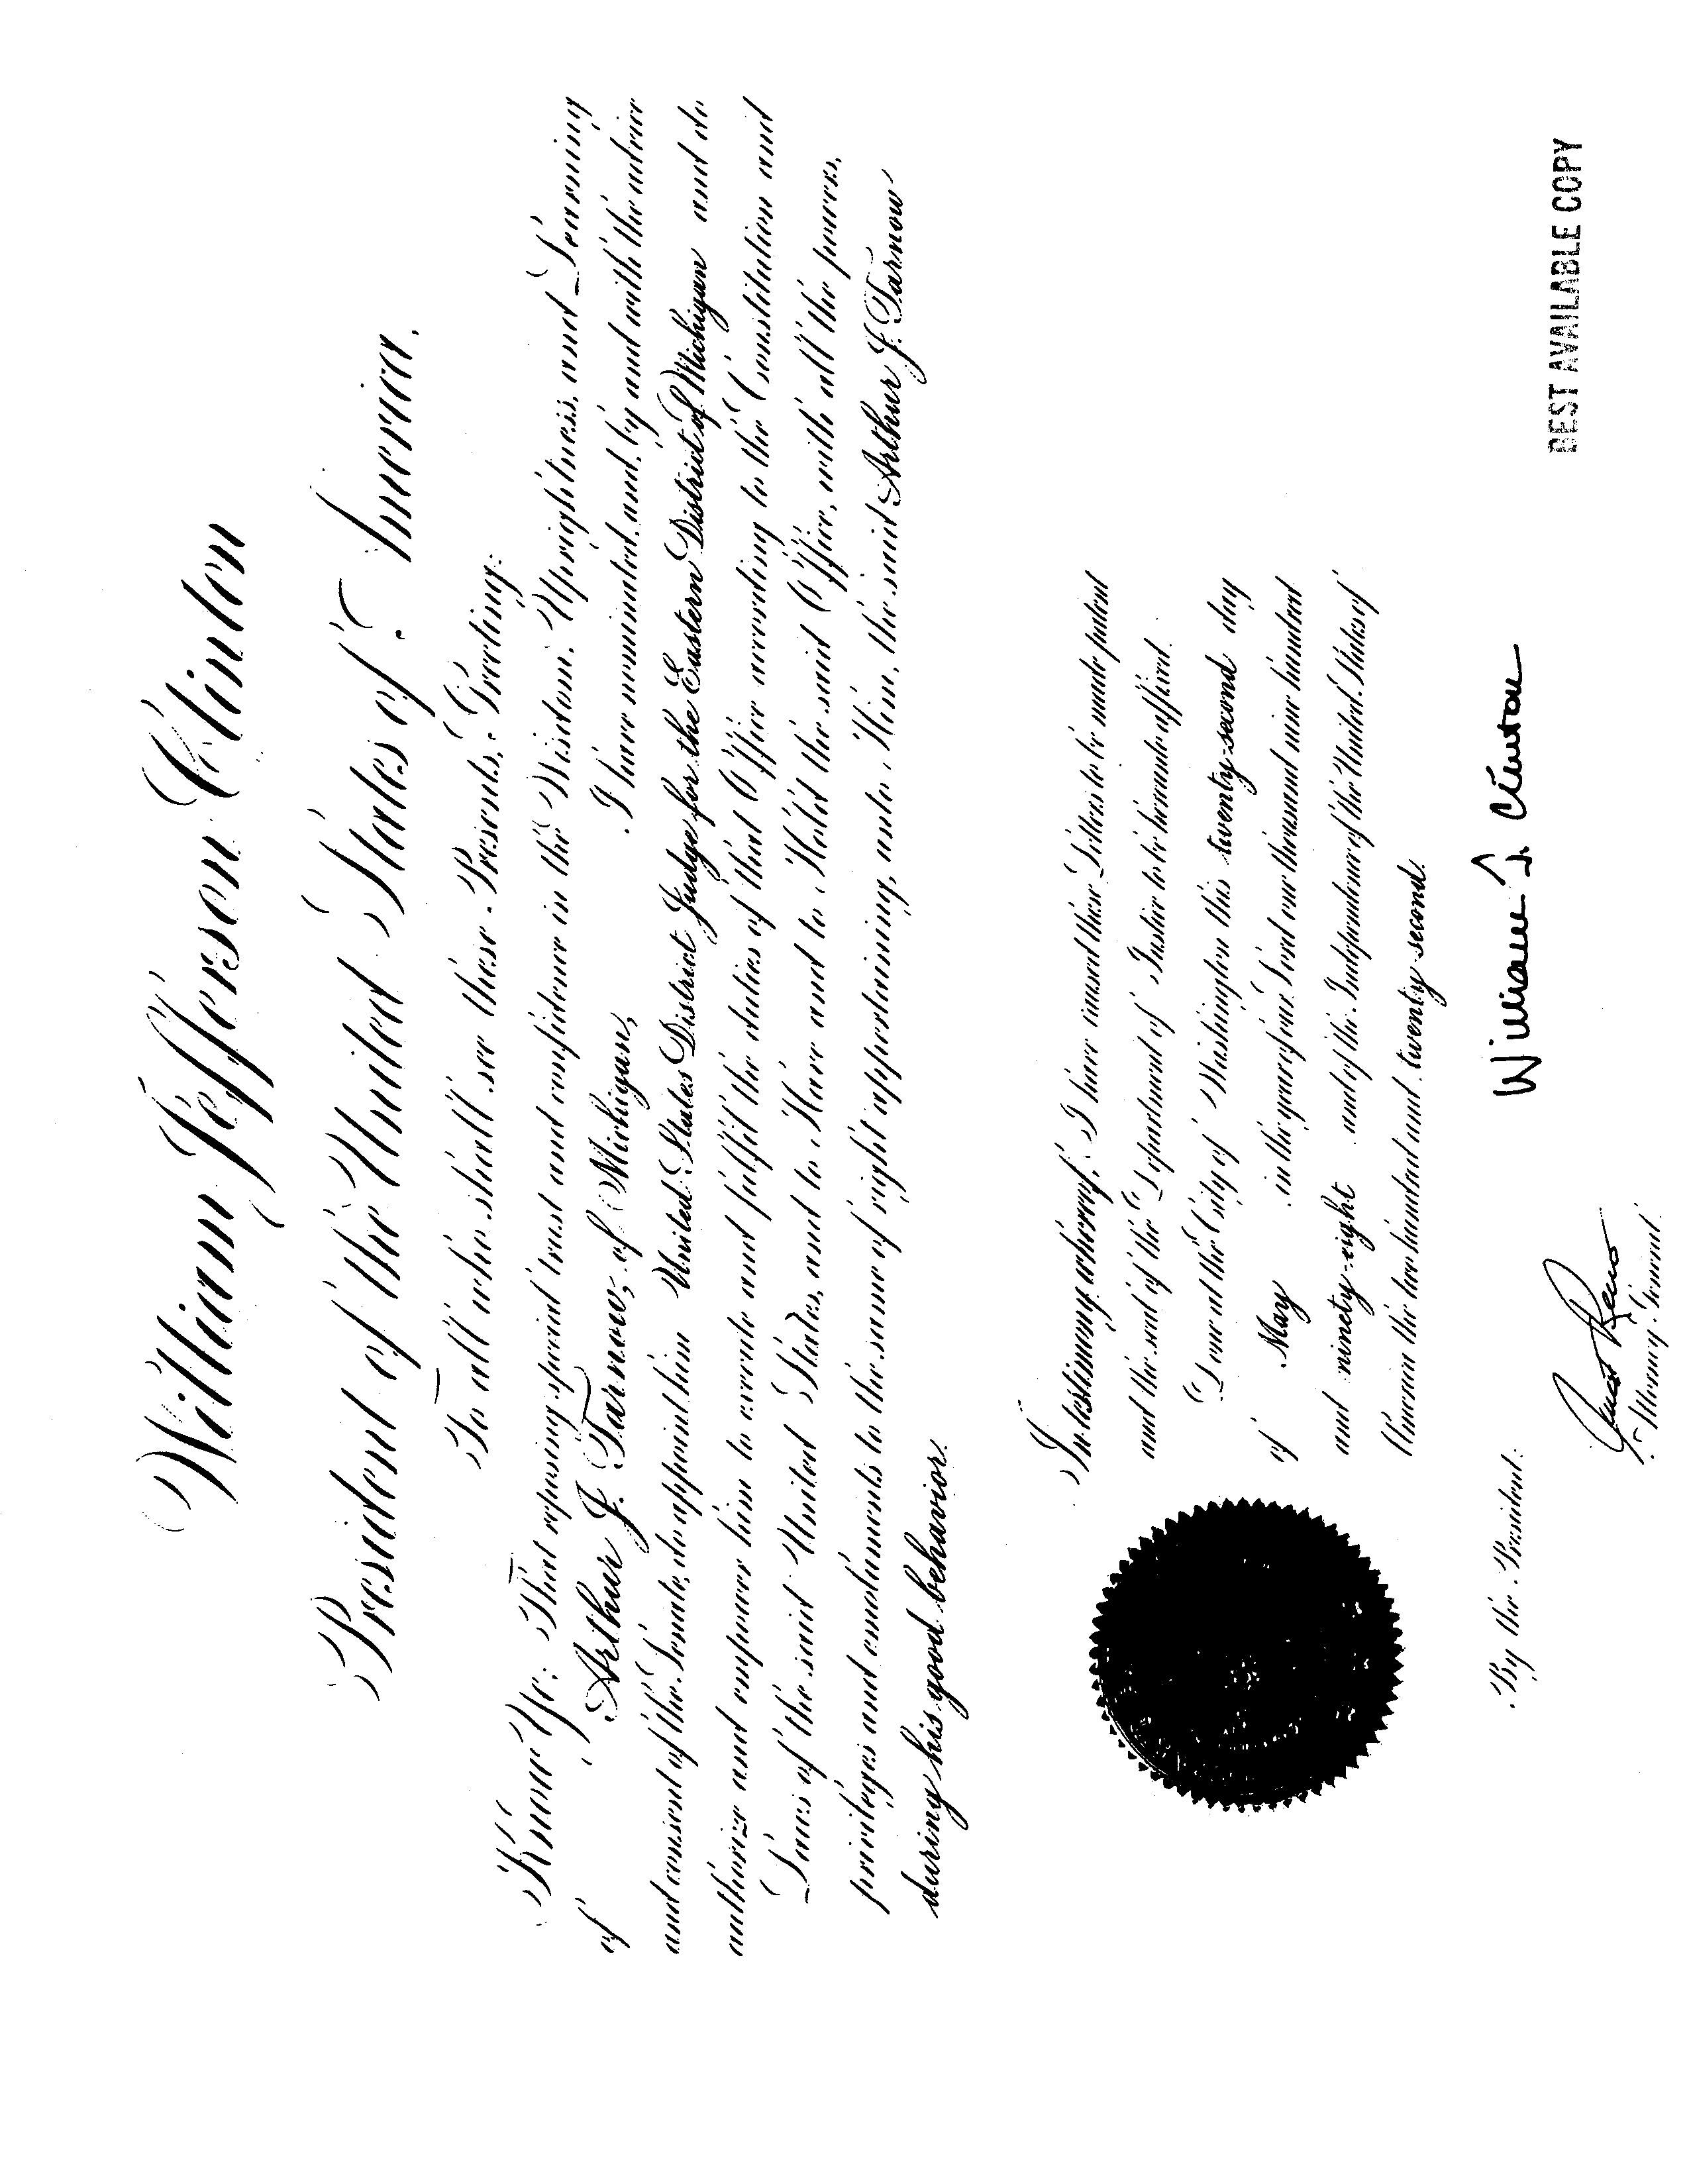 William Jefferson Clinton
President of the United States of America.
To all who shall see these Presents, Greeting:
Know Ye: That reposing special trust and confidence in the Wisdom, Uprightness, and Learning
of Arthur J. Tarnow, of Michigan, I have nominated, and, by and with the advice
and consent of the Senate, do appoint him United States District Judge for the Eastern District of Michigan and do
authorize and empower him to execute and fulfil the duties of that Office according to the Constitution and
Laws of the said United States, and to Have and to Hold the said Office, with all the powers,
privileges and emoluments to the same of right appertaining, unto Him, the said Arthur J. Tarnow
during his good behavior.
In testimony whereof, I have caused these Letters to be made patent
and the seal of the Department of Justice to be hereunto affixed.
Done at the City of Washington this twenty-second day
of May in the year of our Lord one thousand nine hundred
and ninety-eight and of the Independence of the United States of
America the two hundred and twenty-second.
William J. Clinton
By the President:
Janet Reno
Attorney General.
BEST AVAILABLE COPY